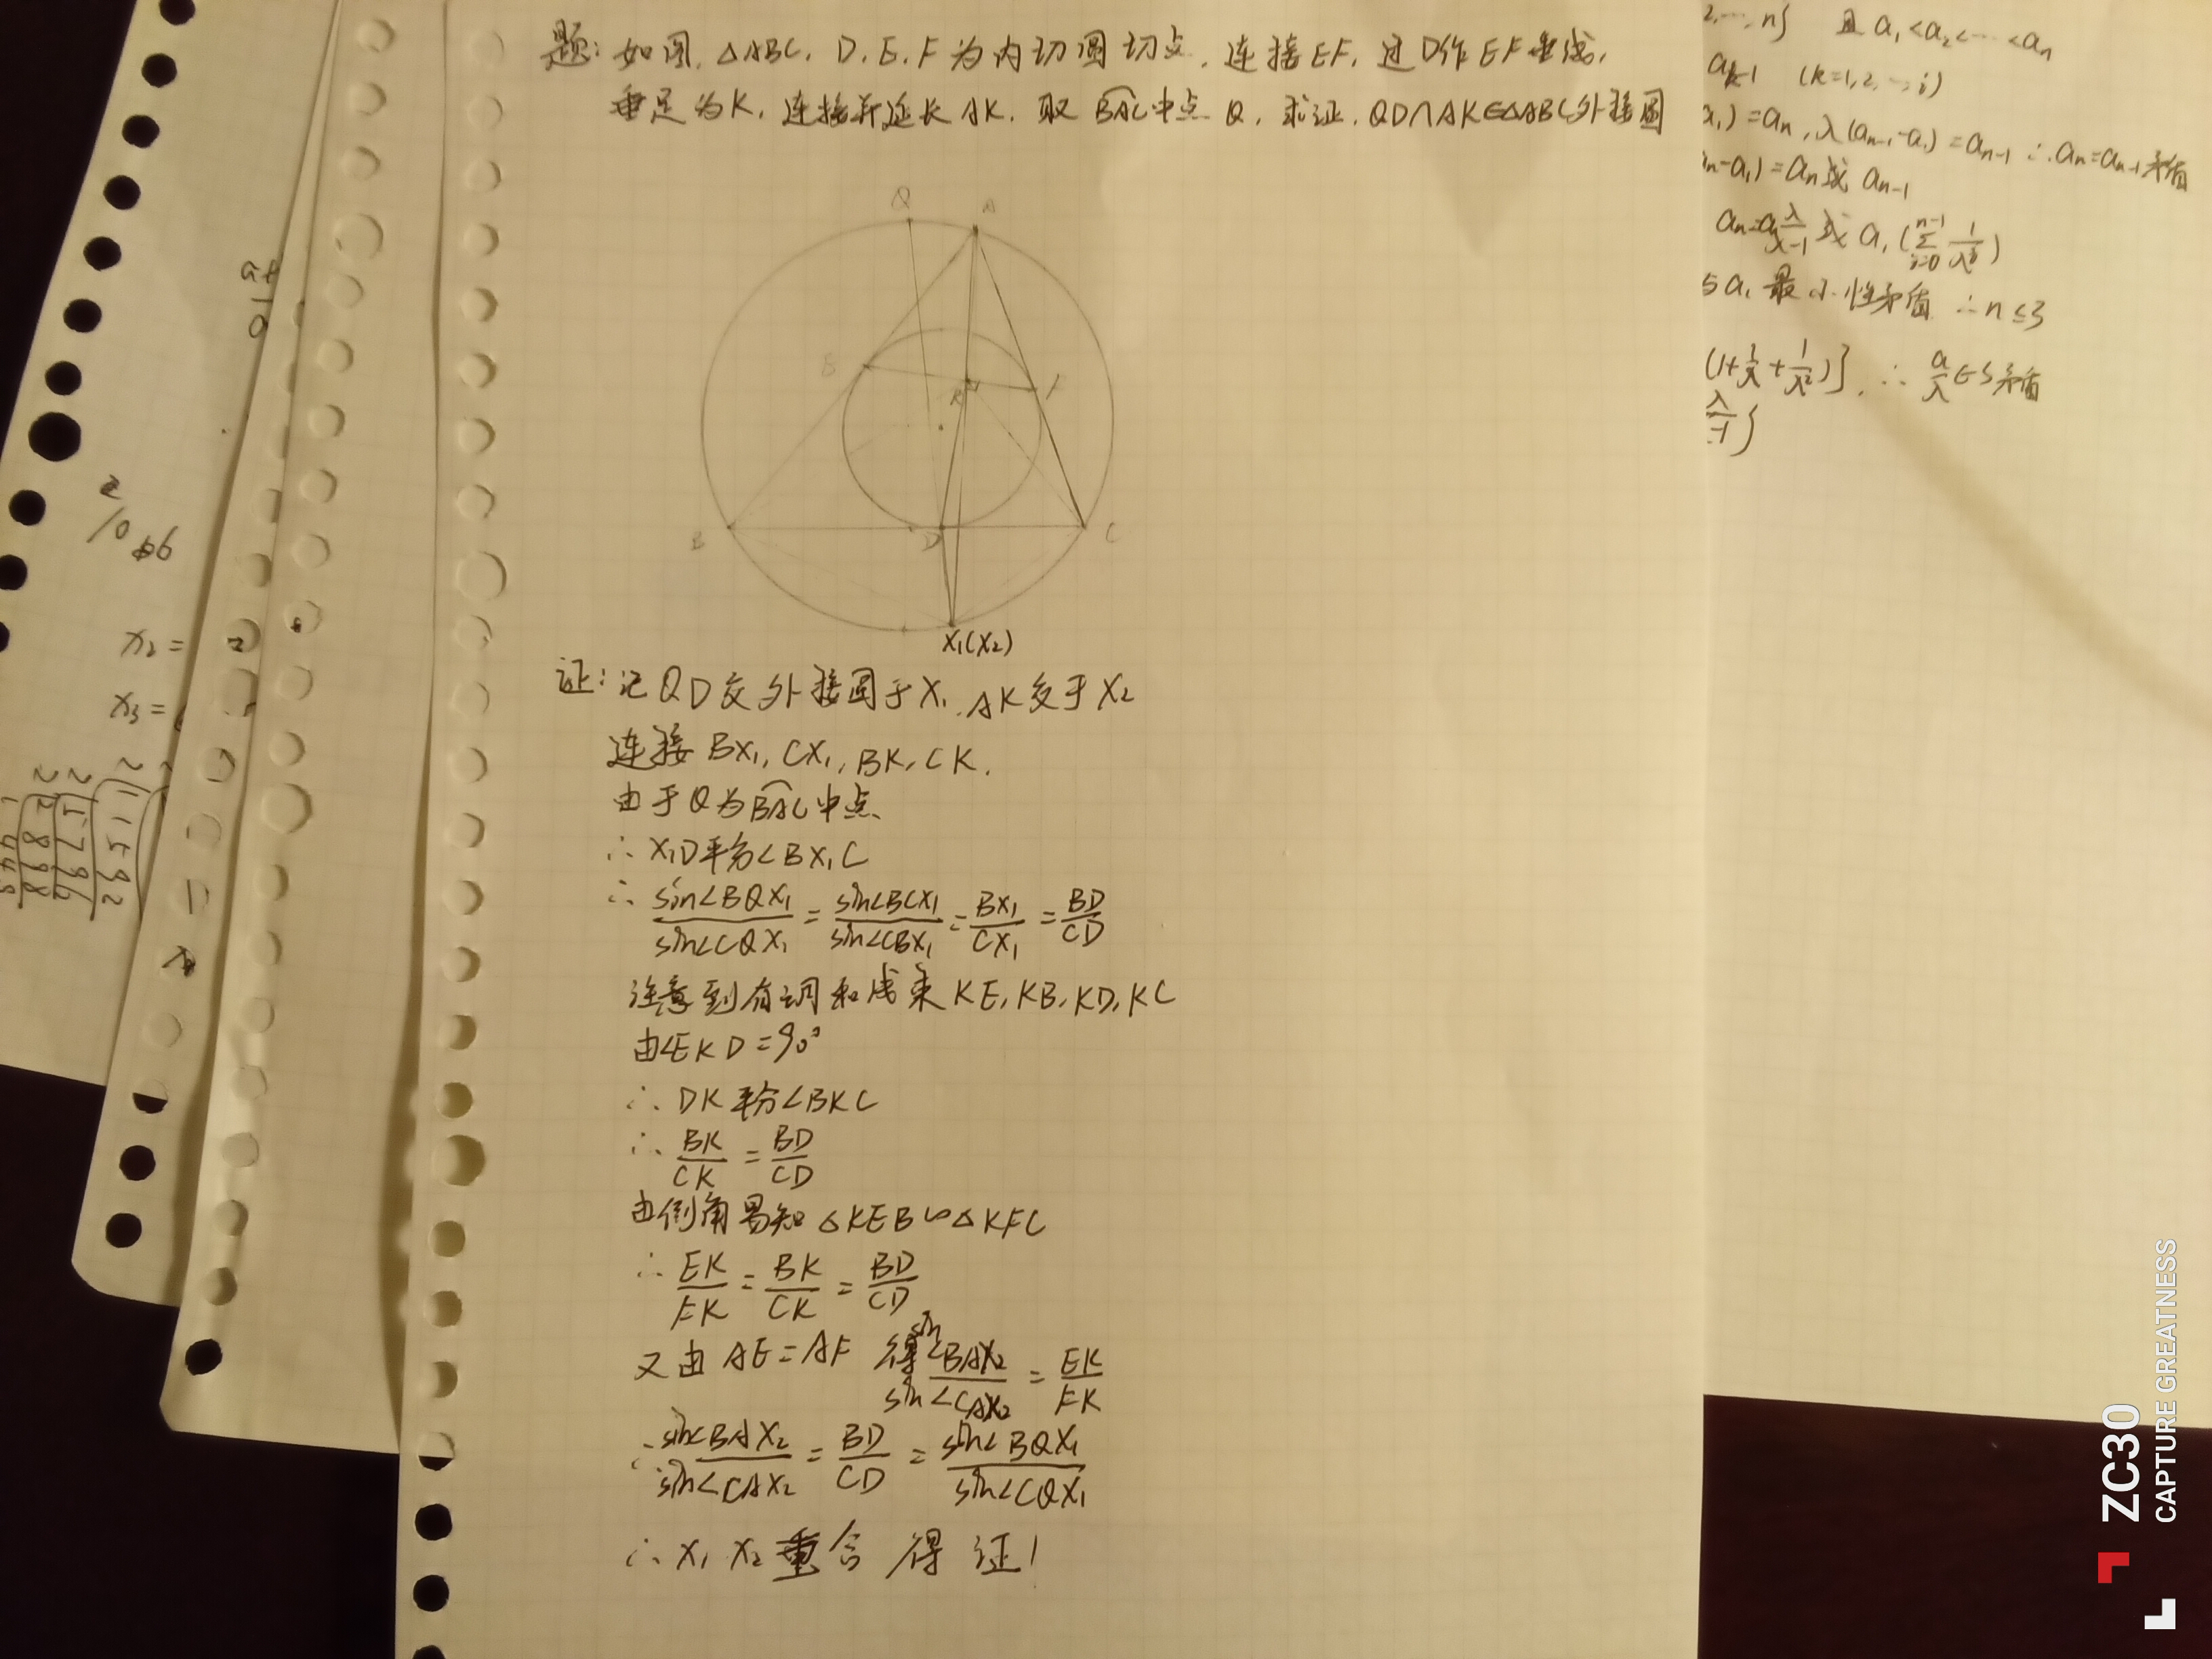 题:如图,△ABC,D,E,F为内切圆切点,连接EF,过D作EF垂线,
垂足为K,连接并延长AK,取BAC中点Q,求证,QD∩AK∈△ABC外接圆
Q
A
E
K
F
B
D
C
X₁(X₂)
证:记QD交外接圆于X₁,AK交于X₂
连接BX₁,CX₁,BK,CK.
由于Q为BAC中点
∴X₁D平分∠BX₁C
∴ sin∠BQX₁/sin∠CQX₁ = sin∠BCX₁/sin∠CBX₁ = BX₁/CX₁ = BD/CD
注意到有调和线束KE,KB,KD,KC
由∠EKD=90°
∴DK平分∠BKC
∴ BK/CK = BD/CD
由倒角易知△KEB∽△KFC
∴ EK/FK = BK/CK = BD/CD
又由AE=AF 得 sin∠BAX₂/sin∠CAX₂ = EK/FK
∴ sin∠BAX₂/sin∠CAX₂ = BD/CD = sin∠BQX₁/sin∠CQX₁
∴X₁ X₂重合 得证!
2,…,n} 且a₁<a₂<…<aₙ
(k=1,2,…,i)
a₁)=aₙ,λ(aₙ₋₁-a₁)=aₙ₋₁ ∴aₙ=aₙ₋₁矛盾
ₙ-a₁)=aₙ或aₙ₋₁
或a₁(∑
与a₁最小性矛盾 ∴n≤3
(1+1/λ+1/λ²)}, ∴ a/λ∈S矛盾
x₂=
x₃=
ZC30
CAPTURE GREATNESS